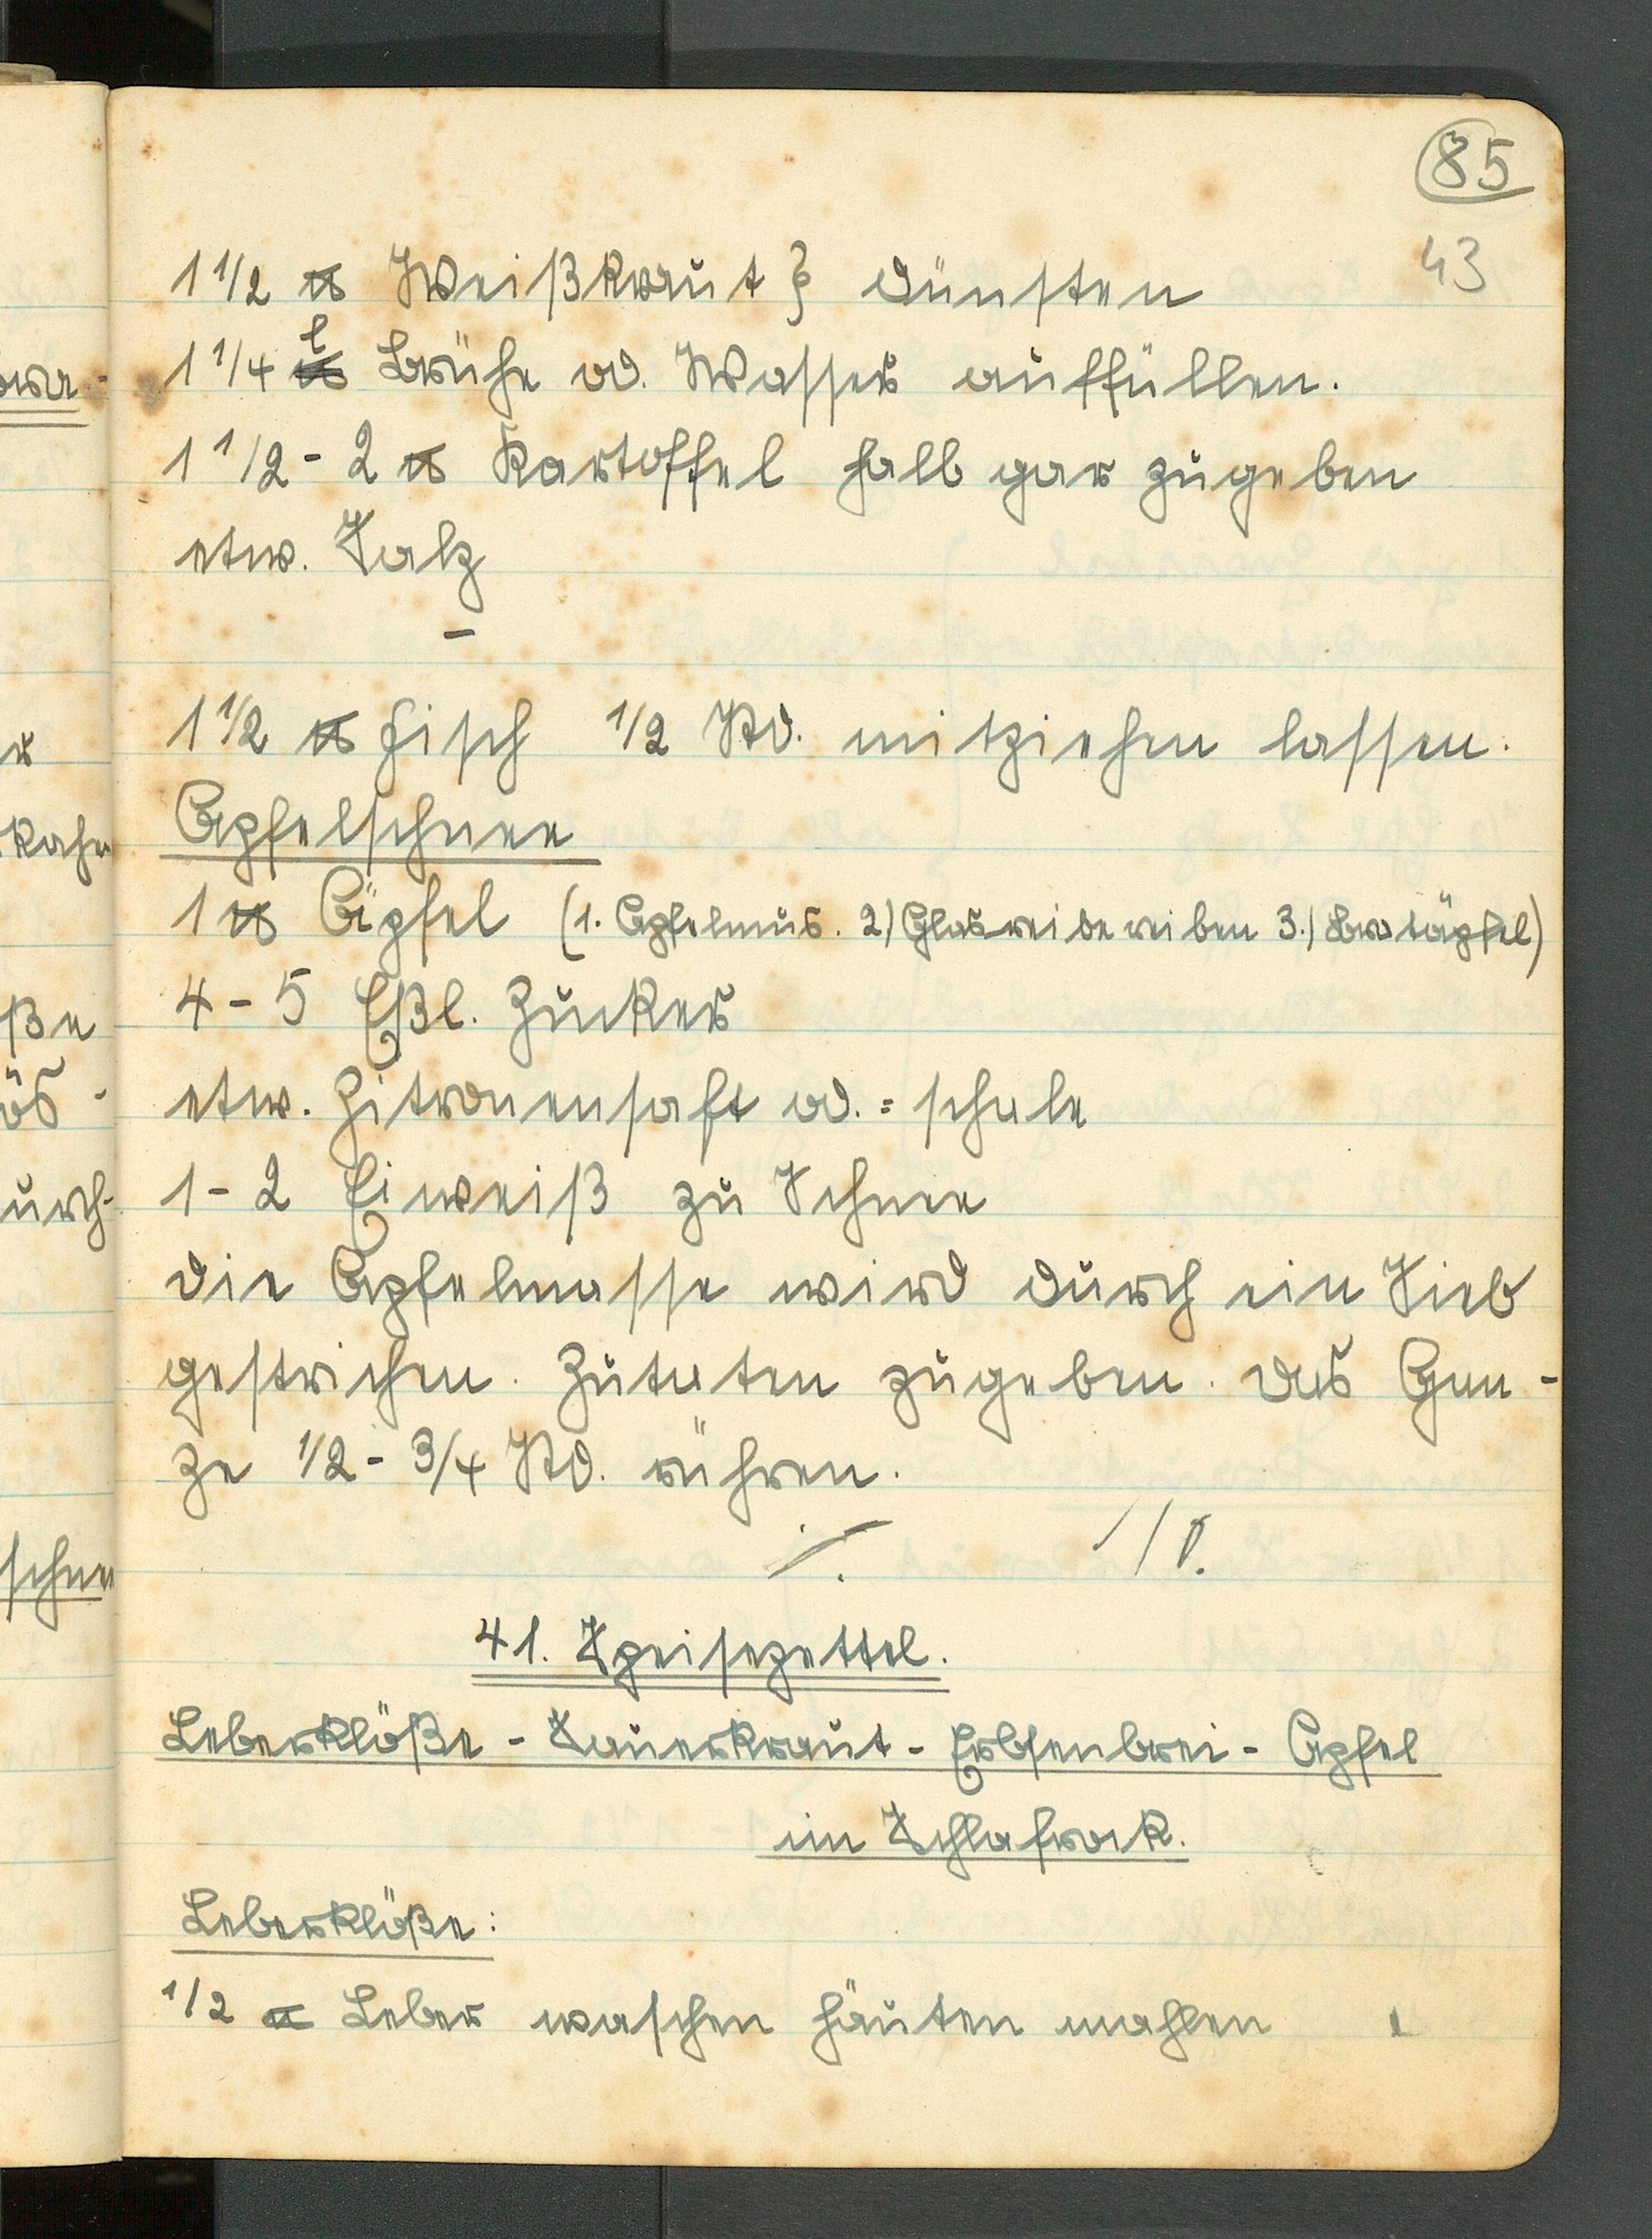 85
43
1 1/2 ℔ Weißkraut } dünsten
1 1/4 l Brühe od. Wasser auffüllen.
1 1/2 - 2 ℔ Kartoffel halb gar zugeben
etw. Salz
–
1 1/2 ℔ Fisch 1/2 Std. mitziehen lassen.
Apfelschnee
1 ℔ Äpfel (1. Apfelmus. 2) Glasreibe reiben 3.) Bratäpfel)
4 - 5 Eßl. Zucker
etw. Zitronensaft od. = schale
1 - 2 Eiweiß zu Schnee
Die Apfelmasse wird durch ein Sieb
gestrichen. Zutaten zugeben. Das Gan-
ze 1/2 - 3/4 Std. rühren.
41. Speisezettel.
Leberklöße - Sauerkraut - Erbsenbrei - Apfel
im Schlafrock.
Leberklöße:
1/2 ℔ Leber waschen häuten mahlen